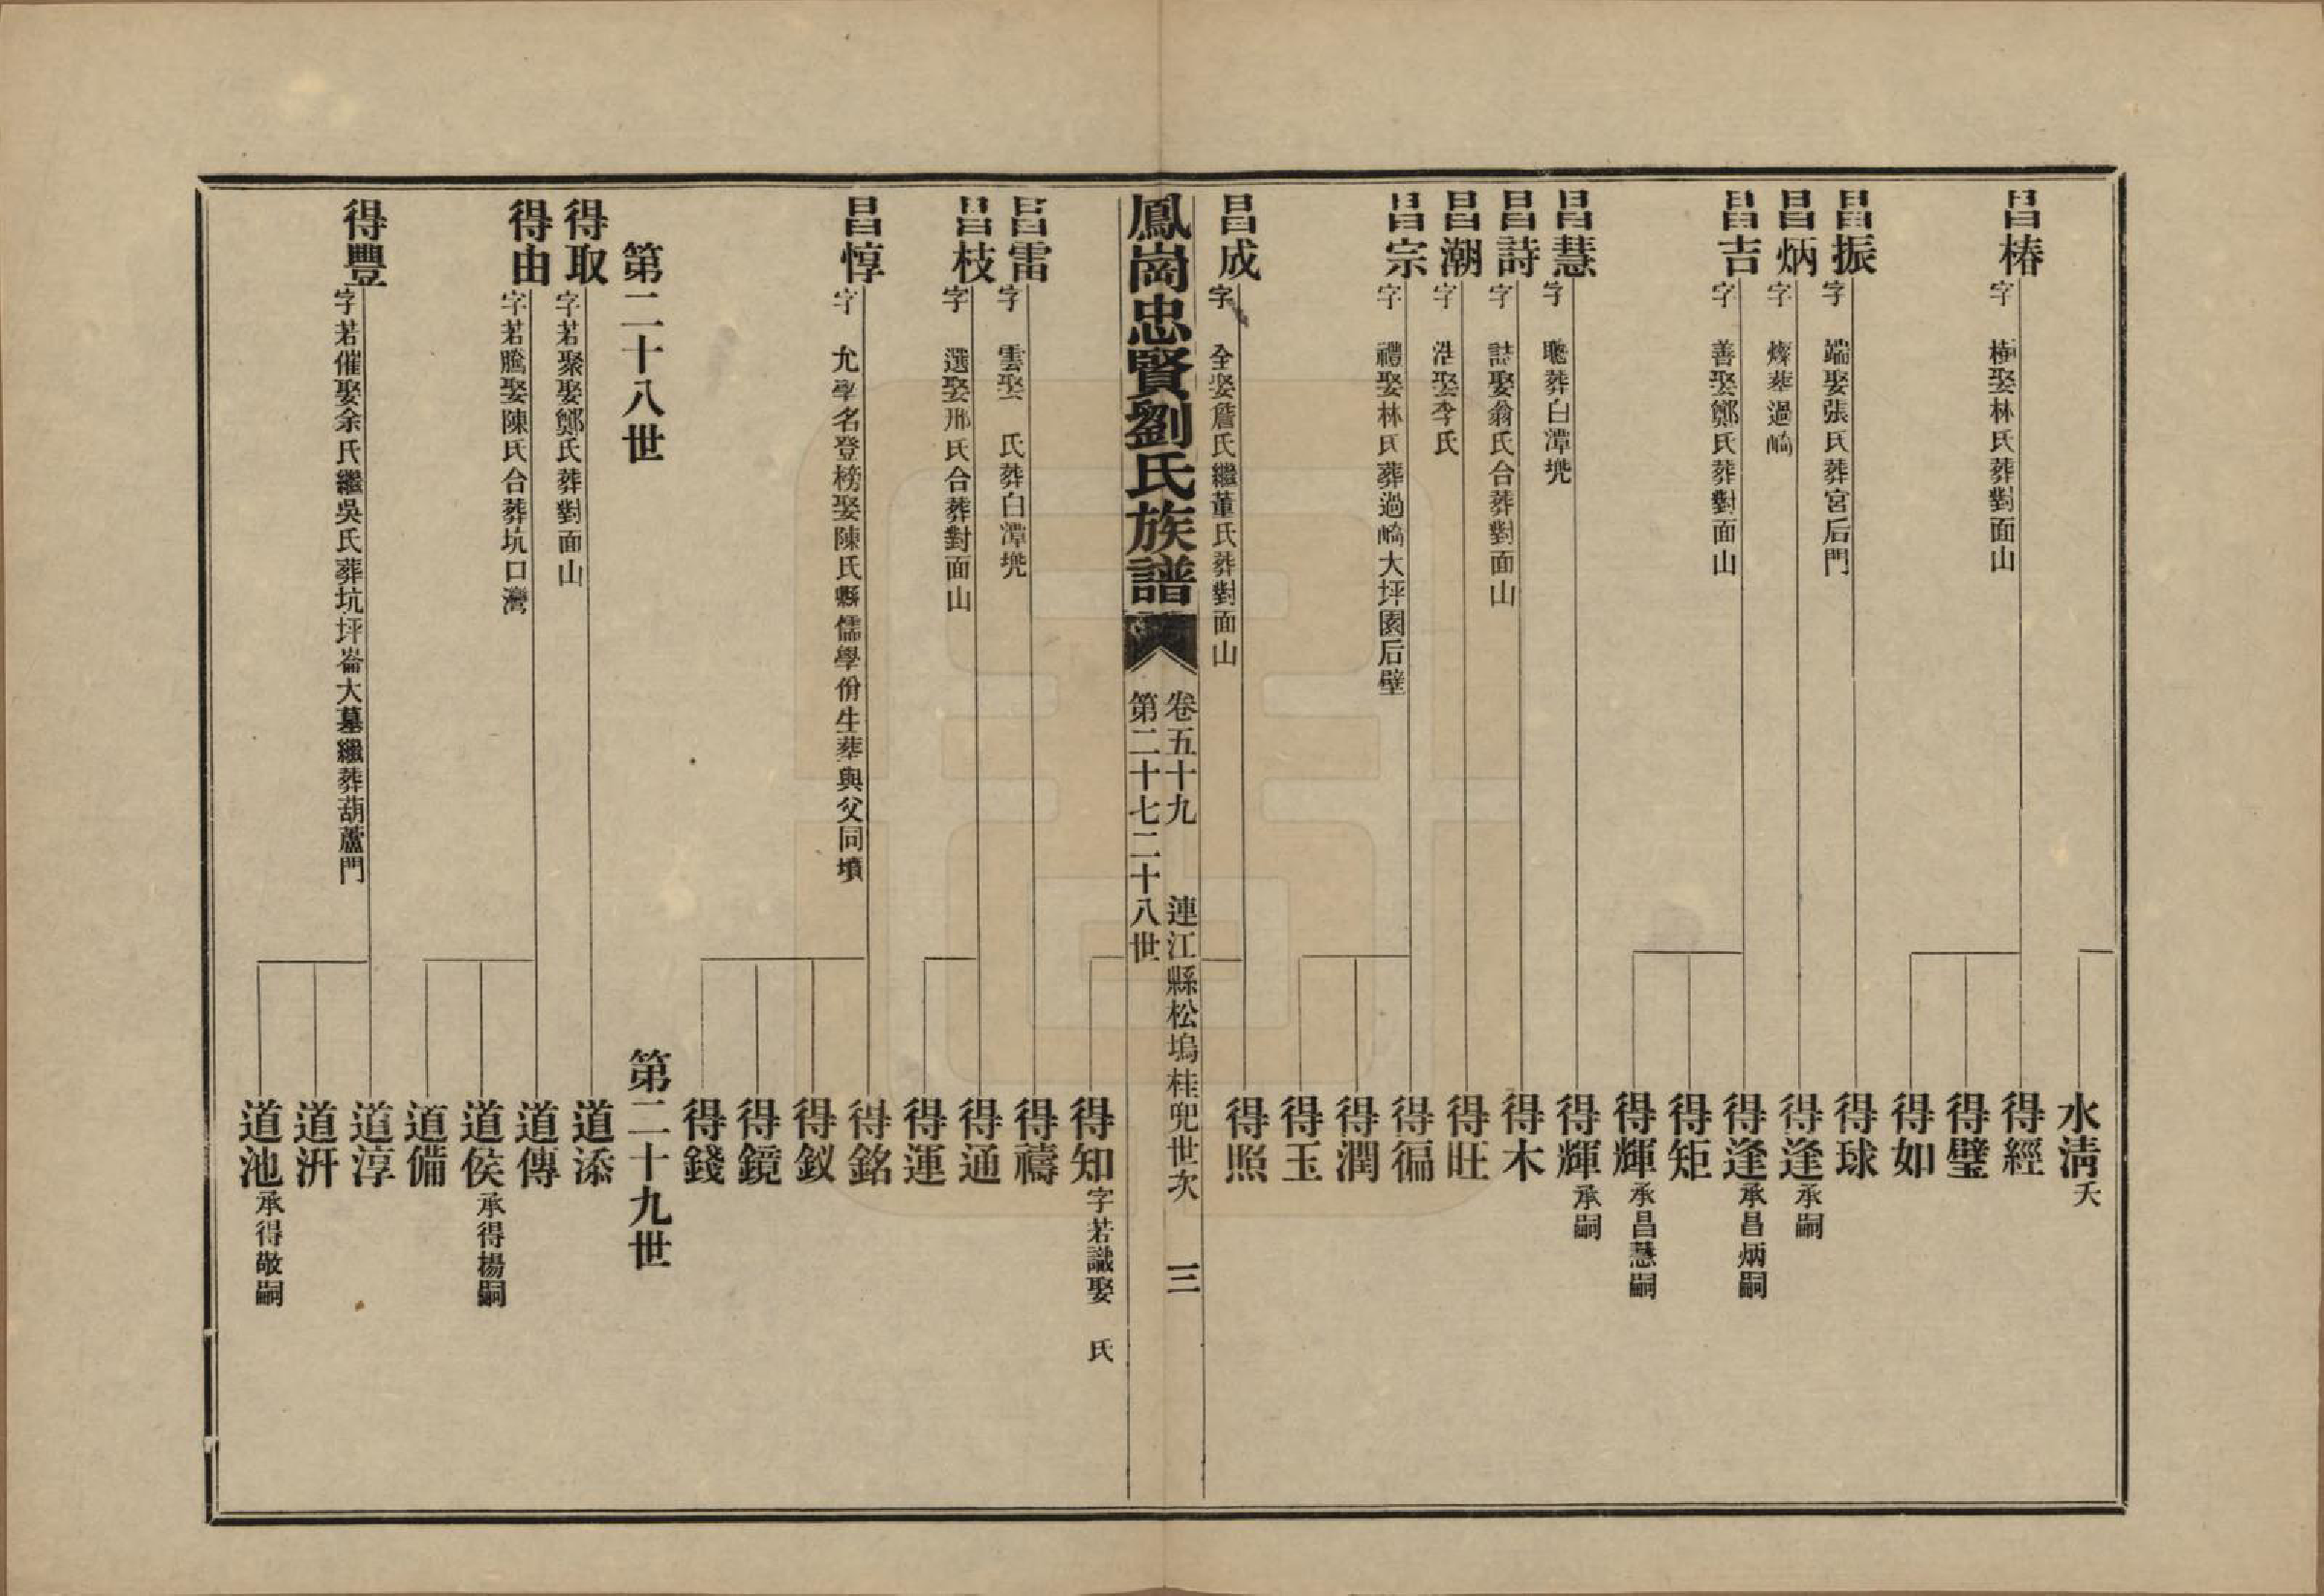 水清夭
昌椿字　極娶林氏葬對面山
得經
得璧
得如
昌振字　端娶張氏葬宮后門
得球
昌炳字　燦葬過崎
得逢承嗣
昌吉字　善娶鄭氏葬對面山
得逢承昌炳嗣
得矩
得輝承昌慧嗣
昌慧字　聰葬白潭兠
得輝承嗣
昌詩字　誌娶翁氏合葬對面山
得木
昌潮字　浩娶李氏
得旺
昌宗字　禮娶林氏葬過崎大坪園后壁
得徧
得潤
得玉
昌成字　全娶詹氏繼董氏葬對面山
得照
鳳崗忠賢劉氏族譜
卷五十九　連江縣松塢桂兜世次　三
第二十七二十八世
得知字若識娶　氏
昌雷字　雲娶　氏葬白潭兠
得禱
昌枝字　選娶邢氏合葬對面山
得通
得運
昌惇字　允學名登榜娶陳氏縣儒學佾生葬與父同墳
得銘
得釵
得鏡
得錢
第二十八世
第二十九世
得取字若聚娶鄭氏葬對面山
道添
得由字若騰娶陳氏合葬坑口灣
道傳
道侯承得揚嗣
道備
得豐字若催娶余氏繼吳氏葬坑坪崙大墓繼葬葫蘆門
道淳
道汧
道池承得敬嗣